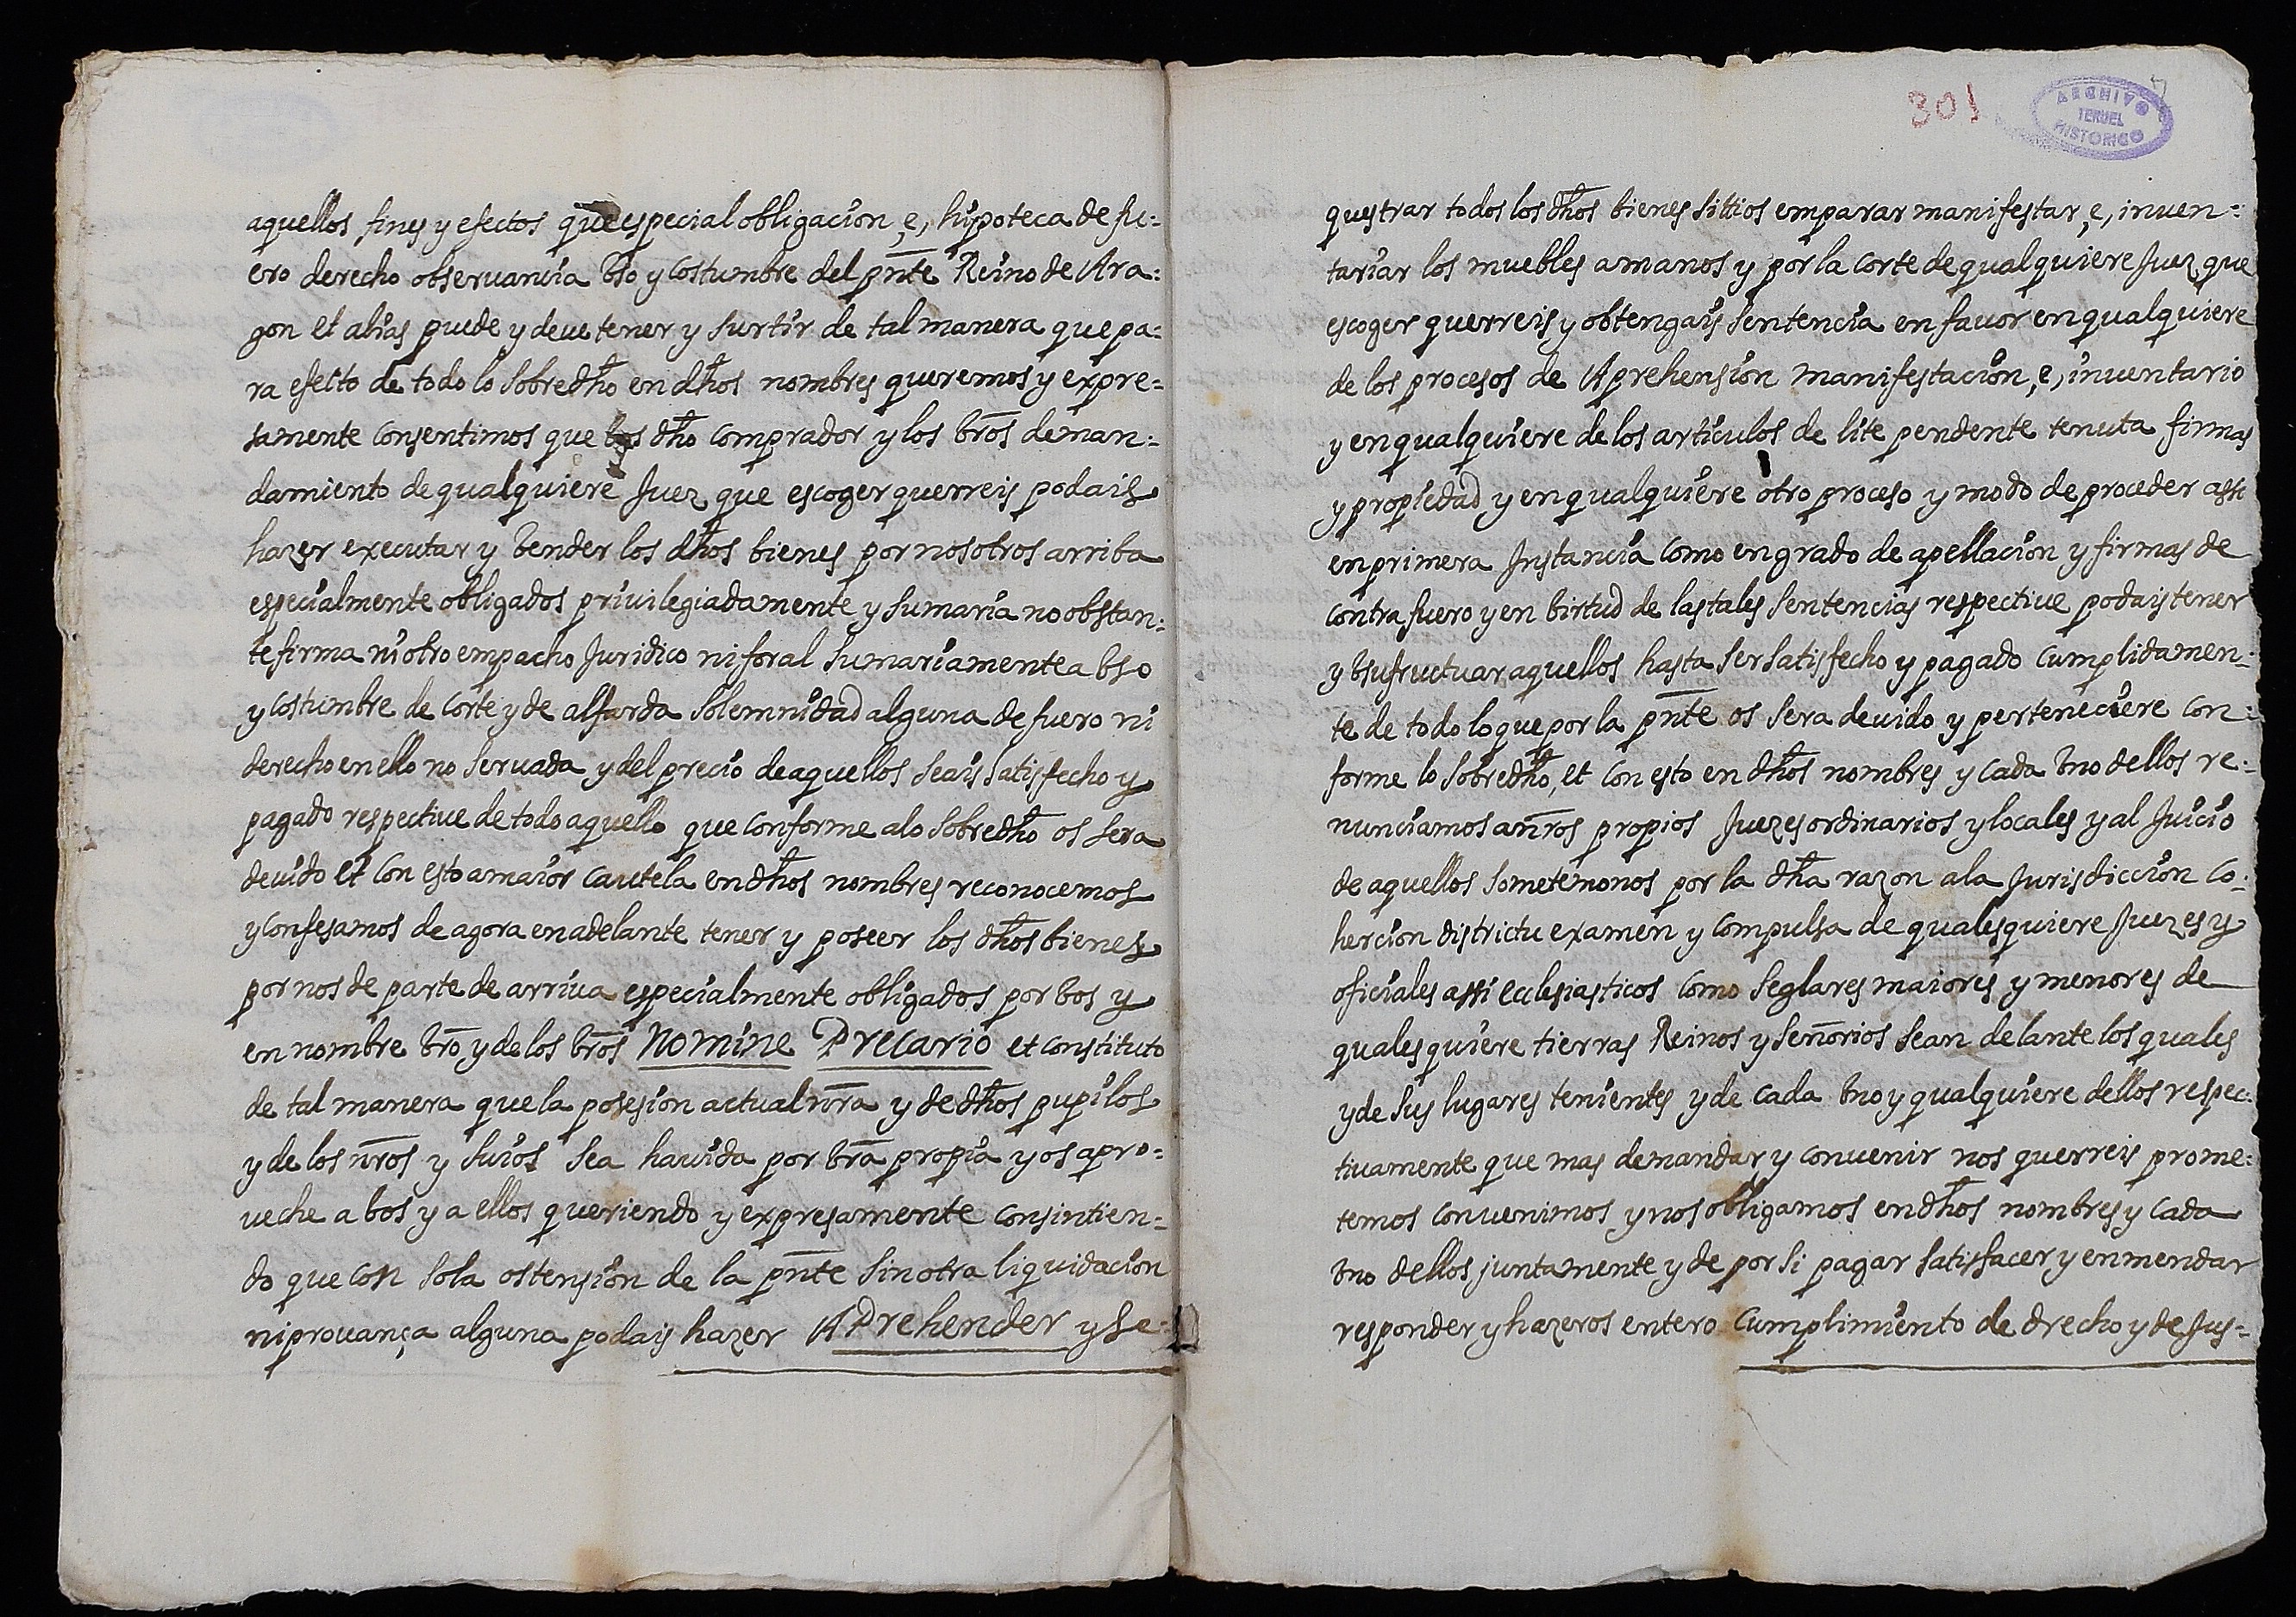 aquellos fines y efectos que especial obligacion, e, hipoteca de fu=
ero derecho obseruancia bso y costumbre del pn̄te Reino de Ara=
gon et alias puede y deue tener y surtir de tal manera que pa=
ra efecto de todo lo sobredh̄o en dh̄os nombres queremos y expre=
samente consentimos que bos dh̄o comprador y los br̄os deman=
damiento de qualquiere Juez que escoger querreis podais
hazer executar y bender los dh̄os bienes por nosotros arriba
especialmente obligados priuilegiadamente y sumaria no obstan=
te firma ni otro empacho Juridico ni foral sumariamente a bso
y costumbre de corte y de alfarda solemnidad alguna de fuero ni
derecho en ello no seruada y del precio de aquellos seais satisfecho y
pagado respectiue de todo aquello que conforme alo sobredh̄o os sera
deuido et con esto a maior cautela en dh̄os nombres reconocemos
y confesamos de agora en adelante tener y poseer los dh̄os bienes
por nos de parte de arriua especialmente obligados por bos y
en nombre br̄o y de los br̄os Nomine Precario et constituto
de tal manera que la posesion actual nr̄a y de dh̄os pupilos
y de los nr̄os y suios sea hauida por br̄a propia y os apro=
ueche a bos y a ellos queriendo y expresamente consintien=
do que con sola ostension de la pn̄te sin otra liquidacion
ni prouança alguna podais hazer APrehender y se=
301
ARCHIVO
TERUEL
HISTORICO
questrar todos los dh̄os bienes sittios emparar manifestar, e, inuen=
tariar los muebles a manos y por la corte de qualquiere Juez que
escoger querreis y obtengais sentencia en fauor en qualquiere
de los procesos de Aprehension manifestacion, e, inuentario
y en qualquiere de los articulos de lite pendente tenuta firmas
y propiedad y en qualquiere otro proceso y modo de proceder assi
en primera Instancia como en grado de apellacion y firmas de
contrafuero y en birtud de las tales sentencias respectiue podais tener
y bsufructuar aquellos hasta ser satisfecho y pagado cumplidamen=
te de todo lo que por la pn̄te os sera deuido y perteneciere con=
forme lo sobredh̄o, et con esto en dh̄os nombres y cada bno dellos re=
nunciamos a nr̄os propios Juezes ordinarios y locales y al Juicio
de aquellos sometemonos por la dh̄a razon a la Jurisdiccion co=
hercion districtu examen y compulsa de qualesquiere Juezes y
oficiales assi ecclesiasticos como seglares maiores y menores de
qualesquiere tierras Reinos y señorios sean delante los quales
y de sus lugares tenientes y de cada bno y qualquiere dellos respec=
tiuamente que mas demandar y conuenir nos querreis prome=
temos conuenimos y nos obligamos en dh̄os nombres y cada
bno dellos juntamente y de por si pagar satisfacer y enmendar
responder y hazeros entero cumplimiento de drecho y de Jus=